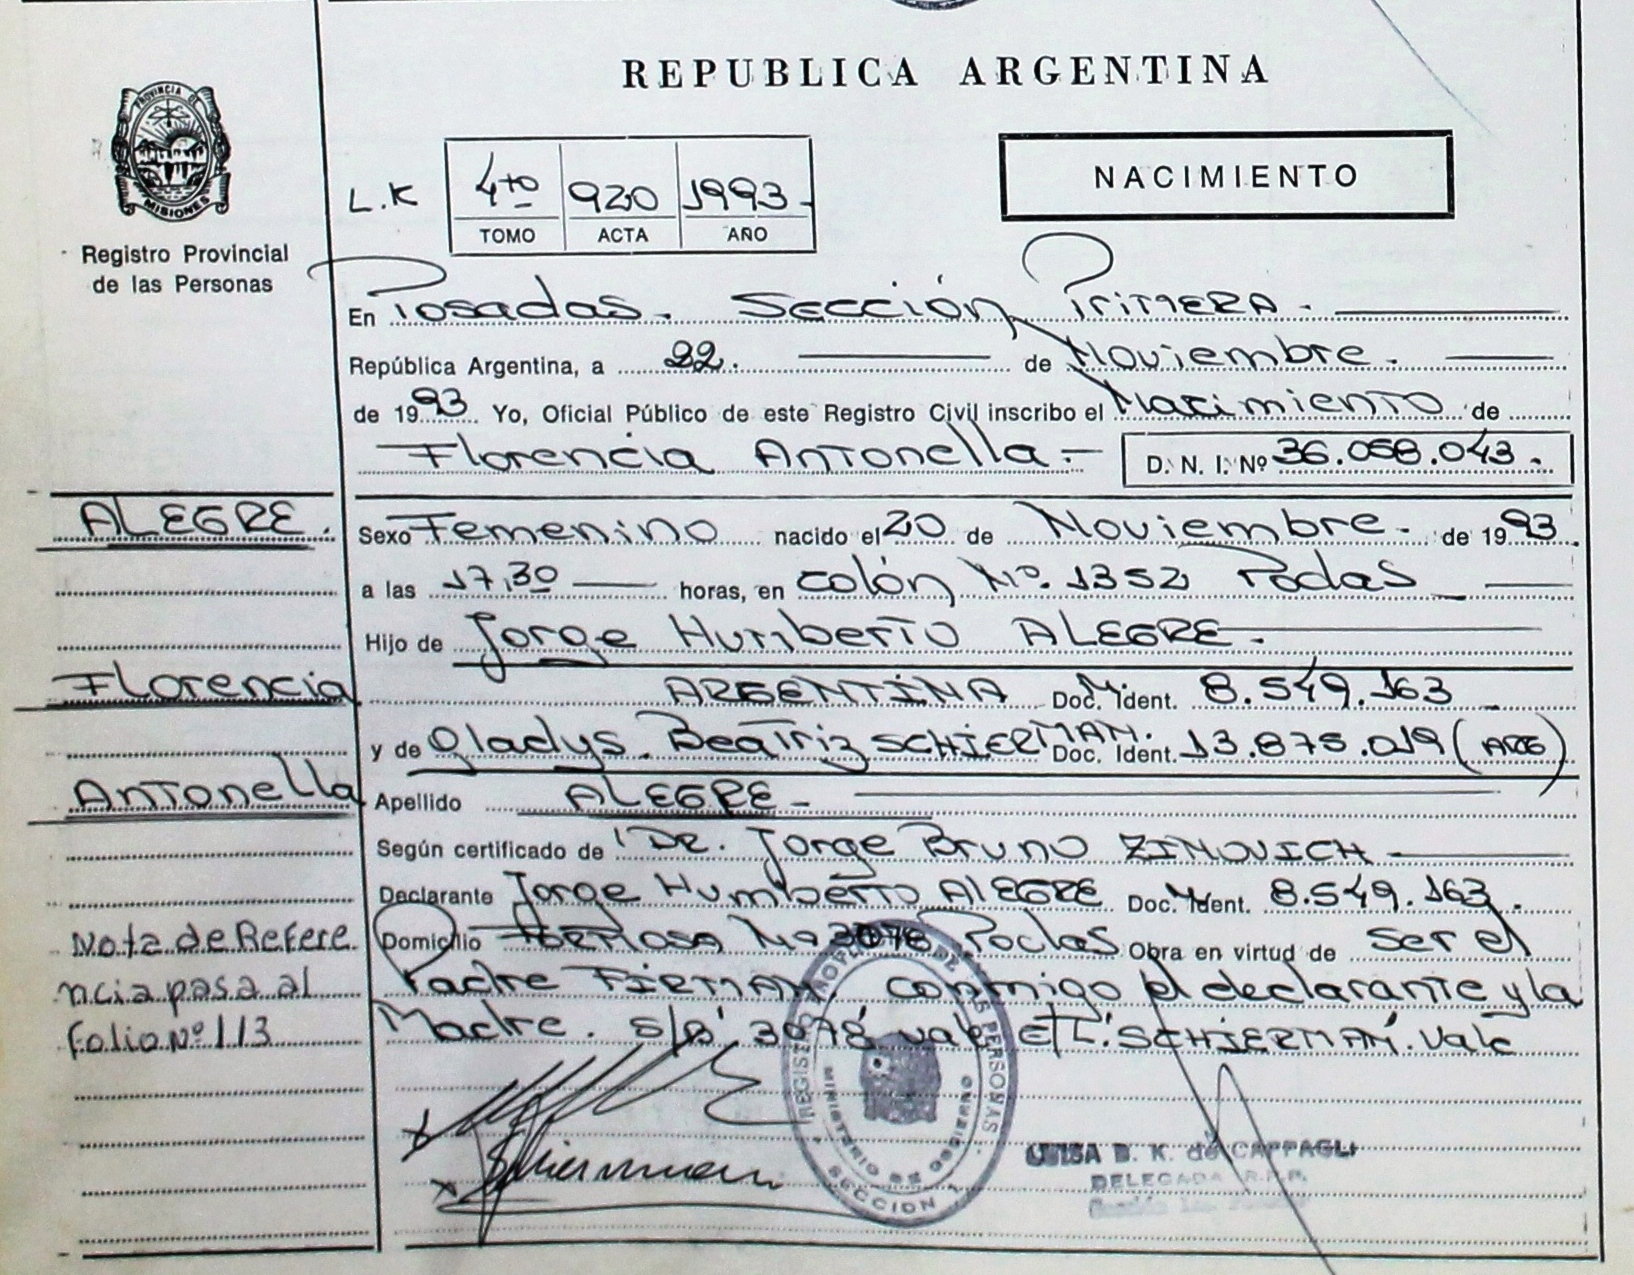 REPUBLICA ARGENTINA
PROVINCIA DE
MISIONES
Registro Provincial
de las Personas
L.K
4to 920 1993.
TOMO ACTA AÑO
NACIMIENTO
En Posadas. Sección Primera.
República Argentina, a 22. de Noviembre.
de 1993 Yo, Oficial Público de este Registro Civil inscribo el Nacimiento de
Florencia Antonella.- D. N. I. Nº 36.058.043.
ALEGRE.
Sexo Femenino nacido el 20 de Noviembre. de 1993.
a las 17,30 horas, en colón Nº. 1352 Podas
Hijo de Jorge Humberto ALEGRE.
Florencia
ARGENTINA Doc. M. Ident. 8.549.163
y de Gladys. Beatriz SCHIERMAN. Doc. Ident. 13.875.019 (ARG)
Antonella
Apellido ALEGRE-
Según certificado de Dr. Jorge Bruno ZINOVICH
Declarante Jorge Humberto ALEGRE Doc. M. Ident. 8.549.163.
Nota de Refere
ncia pasa al
folio Nº 113
Domicilio FORMOSA Nº 3078 Podas Obra en virtud de ser el
Padre FIRMAN conmigo el declarante y la
Madre. s/r' 3078 vale E/L: SCHIERMAN. Vale
Schierman
REGISTRO PROVINCIAL DE LAS PERSONAS
MINISTERIO DE GOBIERNO
SECCION 1
LUISA B. K. de CAPPAGLI
DELEGADA R.P.P.